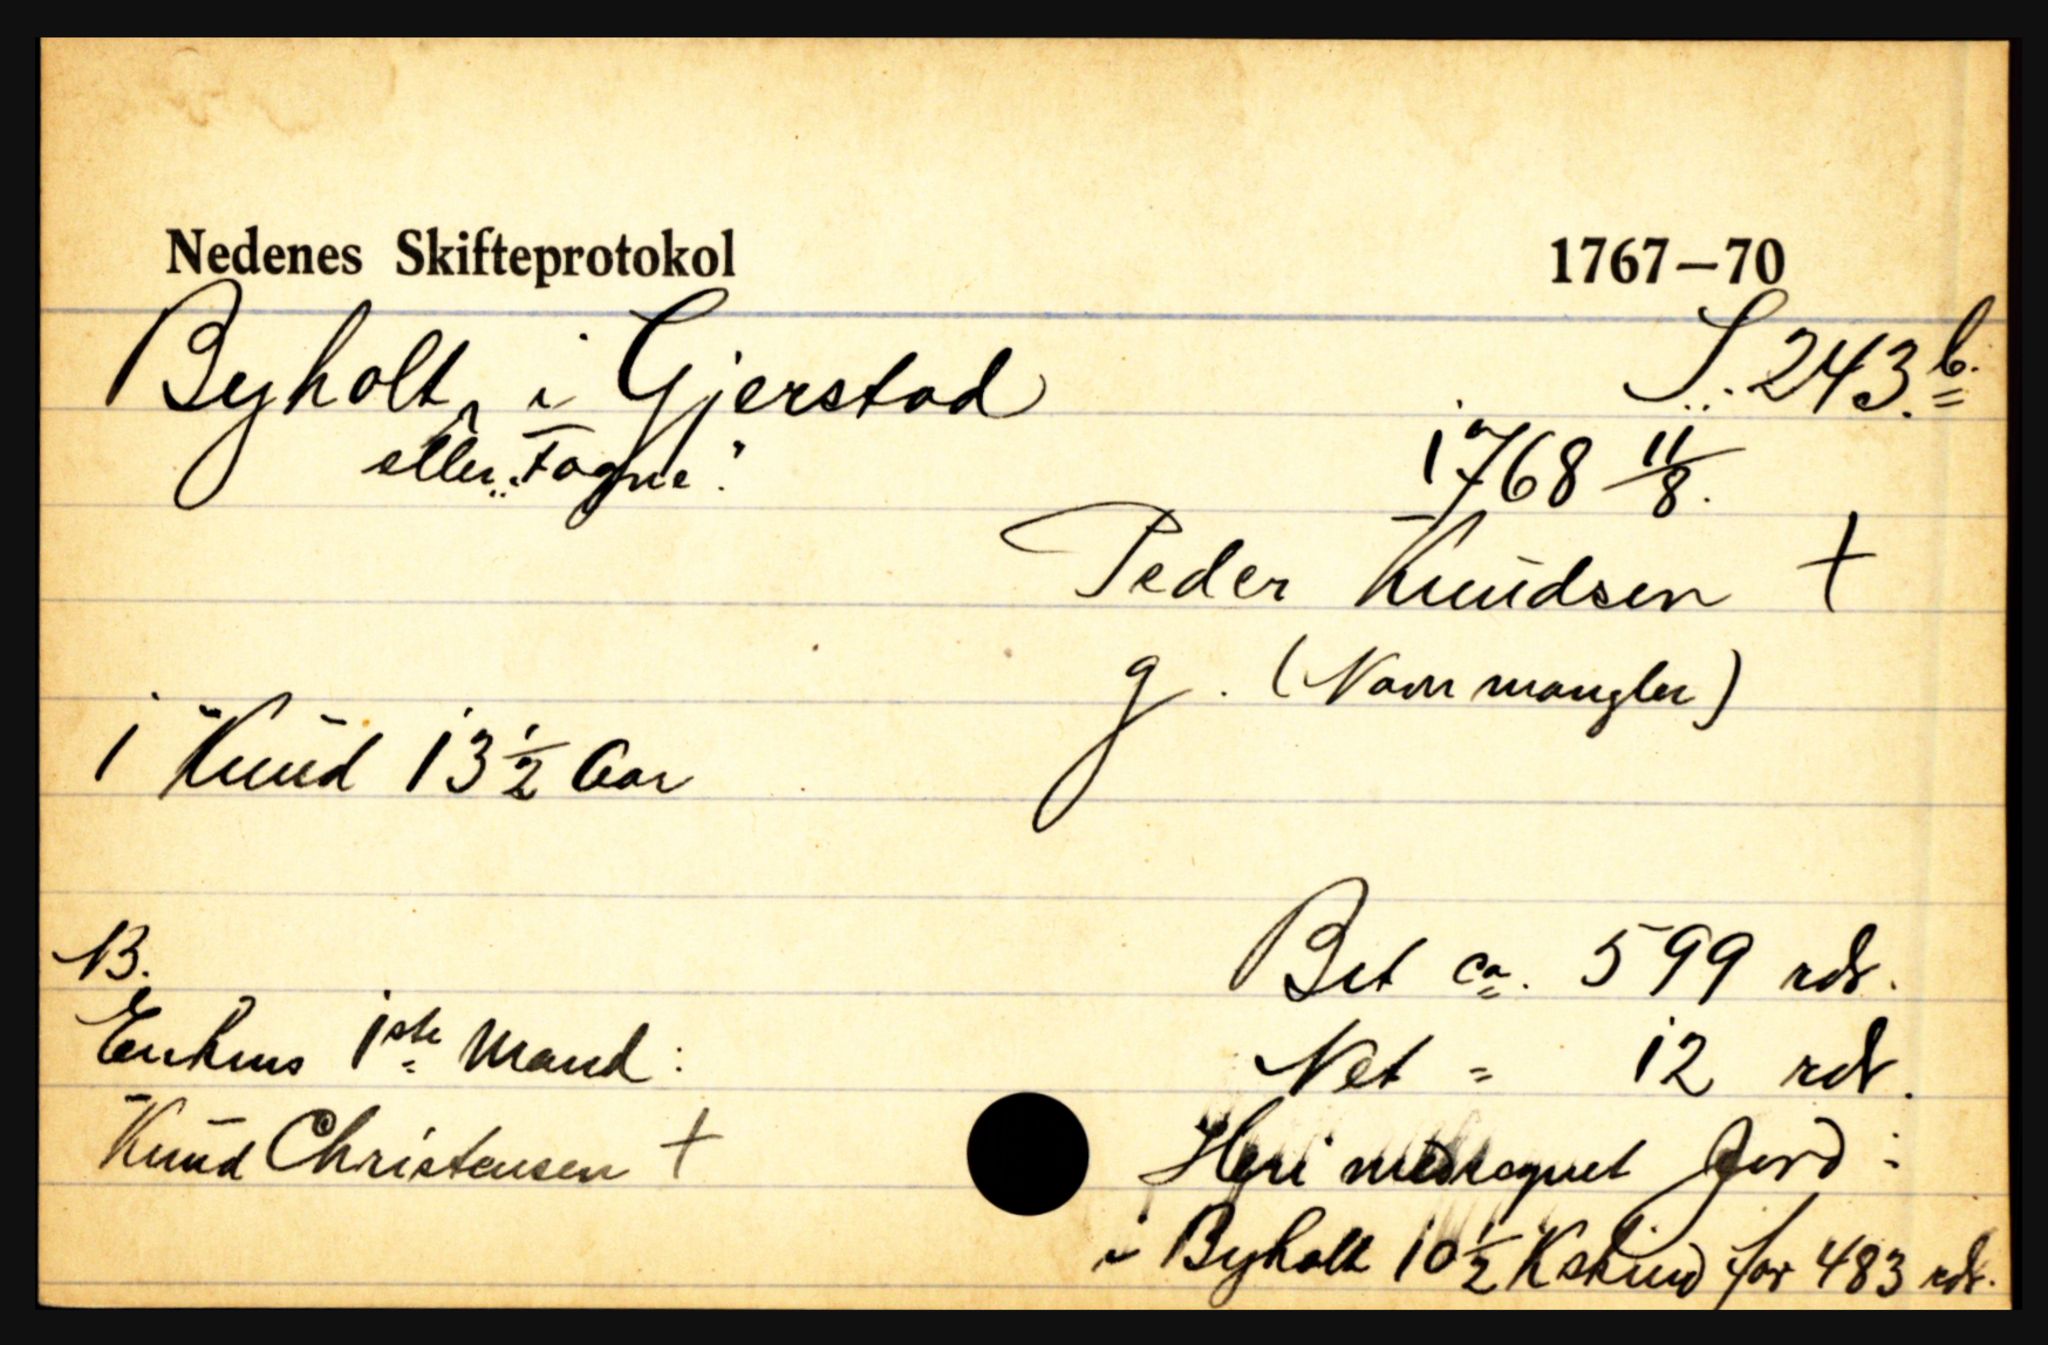 Nedenes Skifteprotokol 1767–70
Byholt, i Gjerstad S. 243.b.
eller "Fogne". 1768 11/8.
Peder Knudsen +
g. (Navn mangler)
1 Knud 13 1/2 Aar
NB. Bet ca. 599 rdr.
Enkens 1ste Mand: Net = 12 rdr.
Knud Christensen + Heri medregnet Jord:
i Byholt 10 1/2 Kskind for 483 rdr.